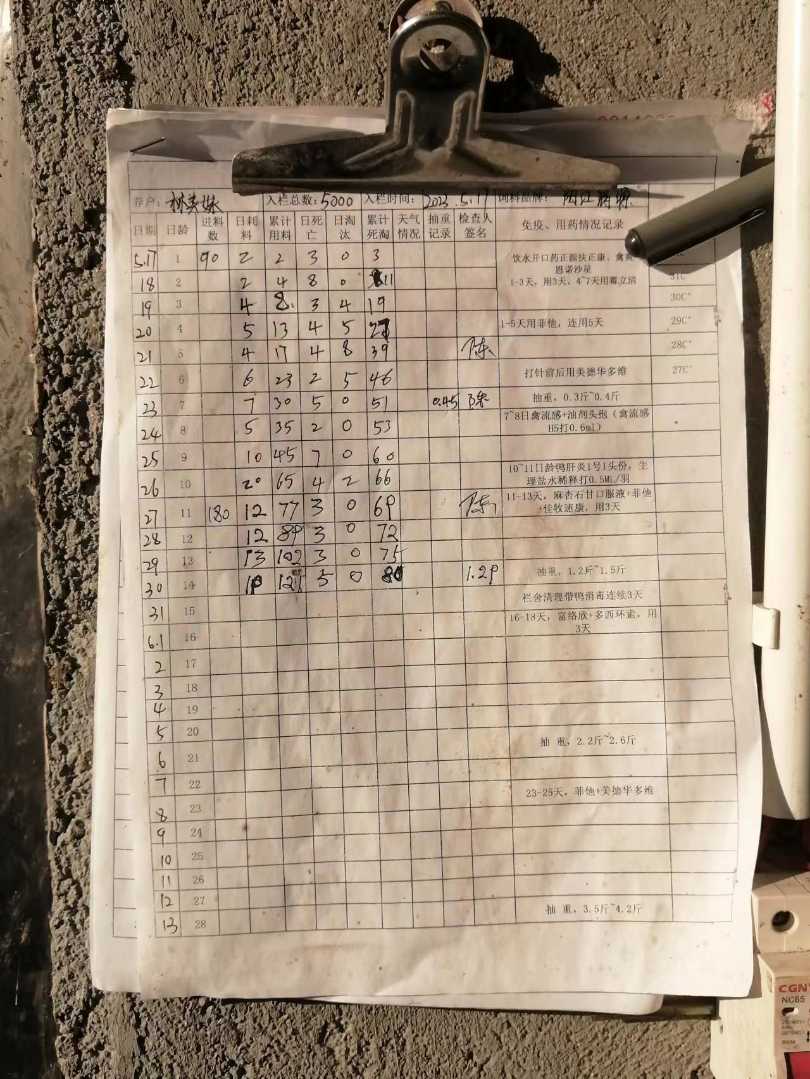 养户: 入栏总数: 5000 入栏时间: 2023.5.17 饲料品牌: 阳江
日期 日龄 进料数 日耗料 累计用料 日死亡 日淘汰 累计死淘 天气情况 抽重记录 检查人签名 免疫、用药情况记录
5.17 1 90 2 2 3 0 3 饮水开口药正源扶正康、禽 恩诺沙星
18 2 2 4 8 0 11 1-3天,用3天,4~7天用霉立清 31C°
19 3 4 8 3 4 19 30C°
20 4 5 13 4 5 27 1-5天用菲他,连用5天 29C°
21 5 4 17 4 8 39 陈 28C°
22 6 6 23 2 5 46 打针前后用美德华多维 27C°
23 7 7 30 5 0 51 0.45 陈 抽重,0.3斤~0.4斤
24 8 5 35 2 0 53 7~8日禽流感+油剂头孢(禽流感H5打0.6ml)
25 9 10 45 7 0 60
26 10 20 65 4 2 66 10~11日龄鸭肝炎1号1头份,生理盐水稀释打0.5ML/羽
27 11 180 12 77 3 0 69 陈 11-13天,麻杏石甘口服液+菲他+佳牧速康,用3天
28 12 12 89 3 0 72
29 13 13 102 3 0 75
30 14 19 121 5 0 80 1.29 抽重,1.2斤~1.5斤
31 15 栏舍清理带鸭消毒连续3天
6.1 16 16-18天,富络欣+多西环素,用3天
2 17
3 18
4 19
5 20
6 21 抽 重,2.2斤~2.6斤
7 22
8 23 23-25天,菲他+美德华多维
9 24
10 25
11 26
12 27
13 28 抽 重,3.5斤~4.2斤
CGN
NC65